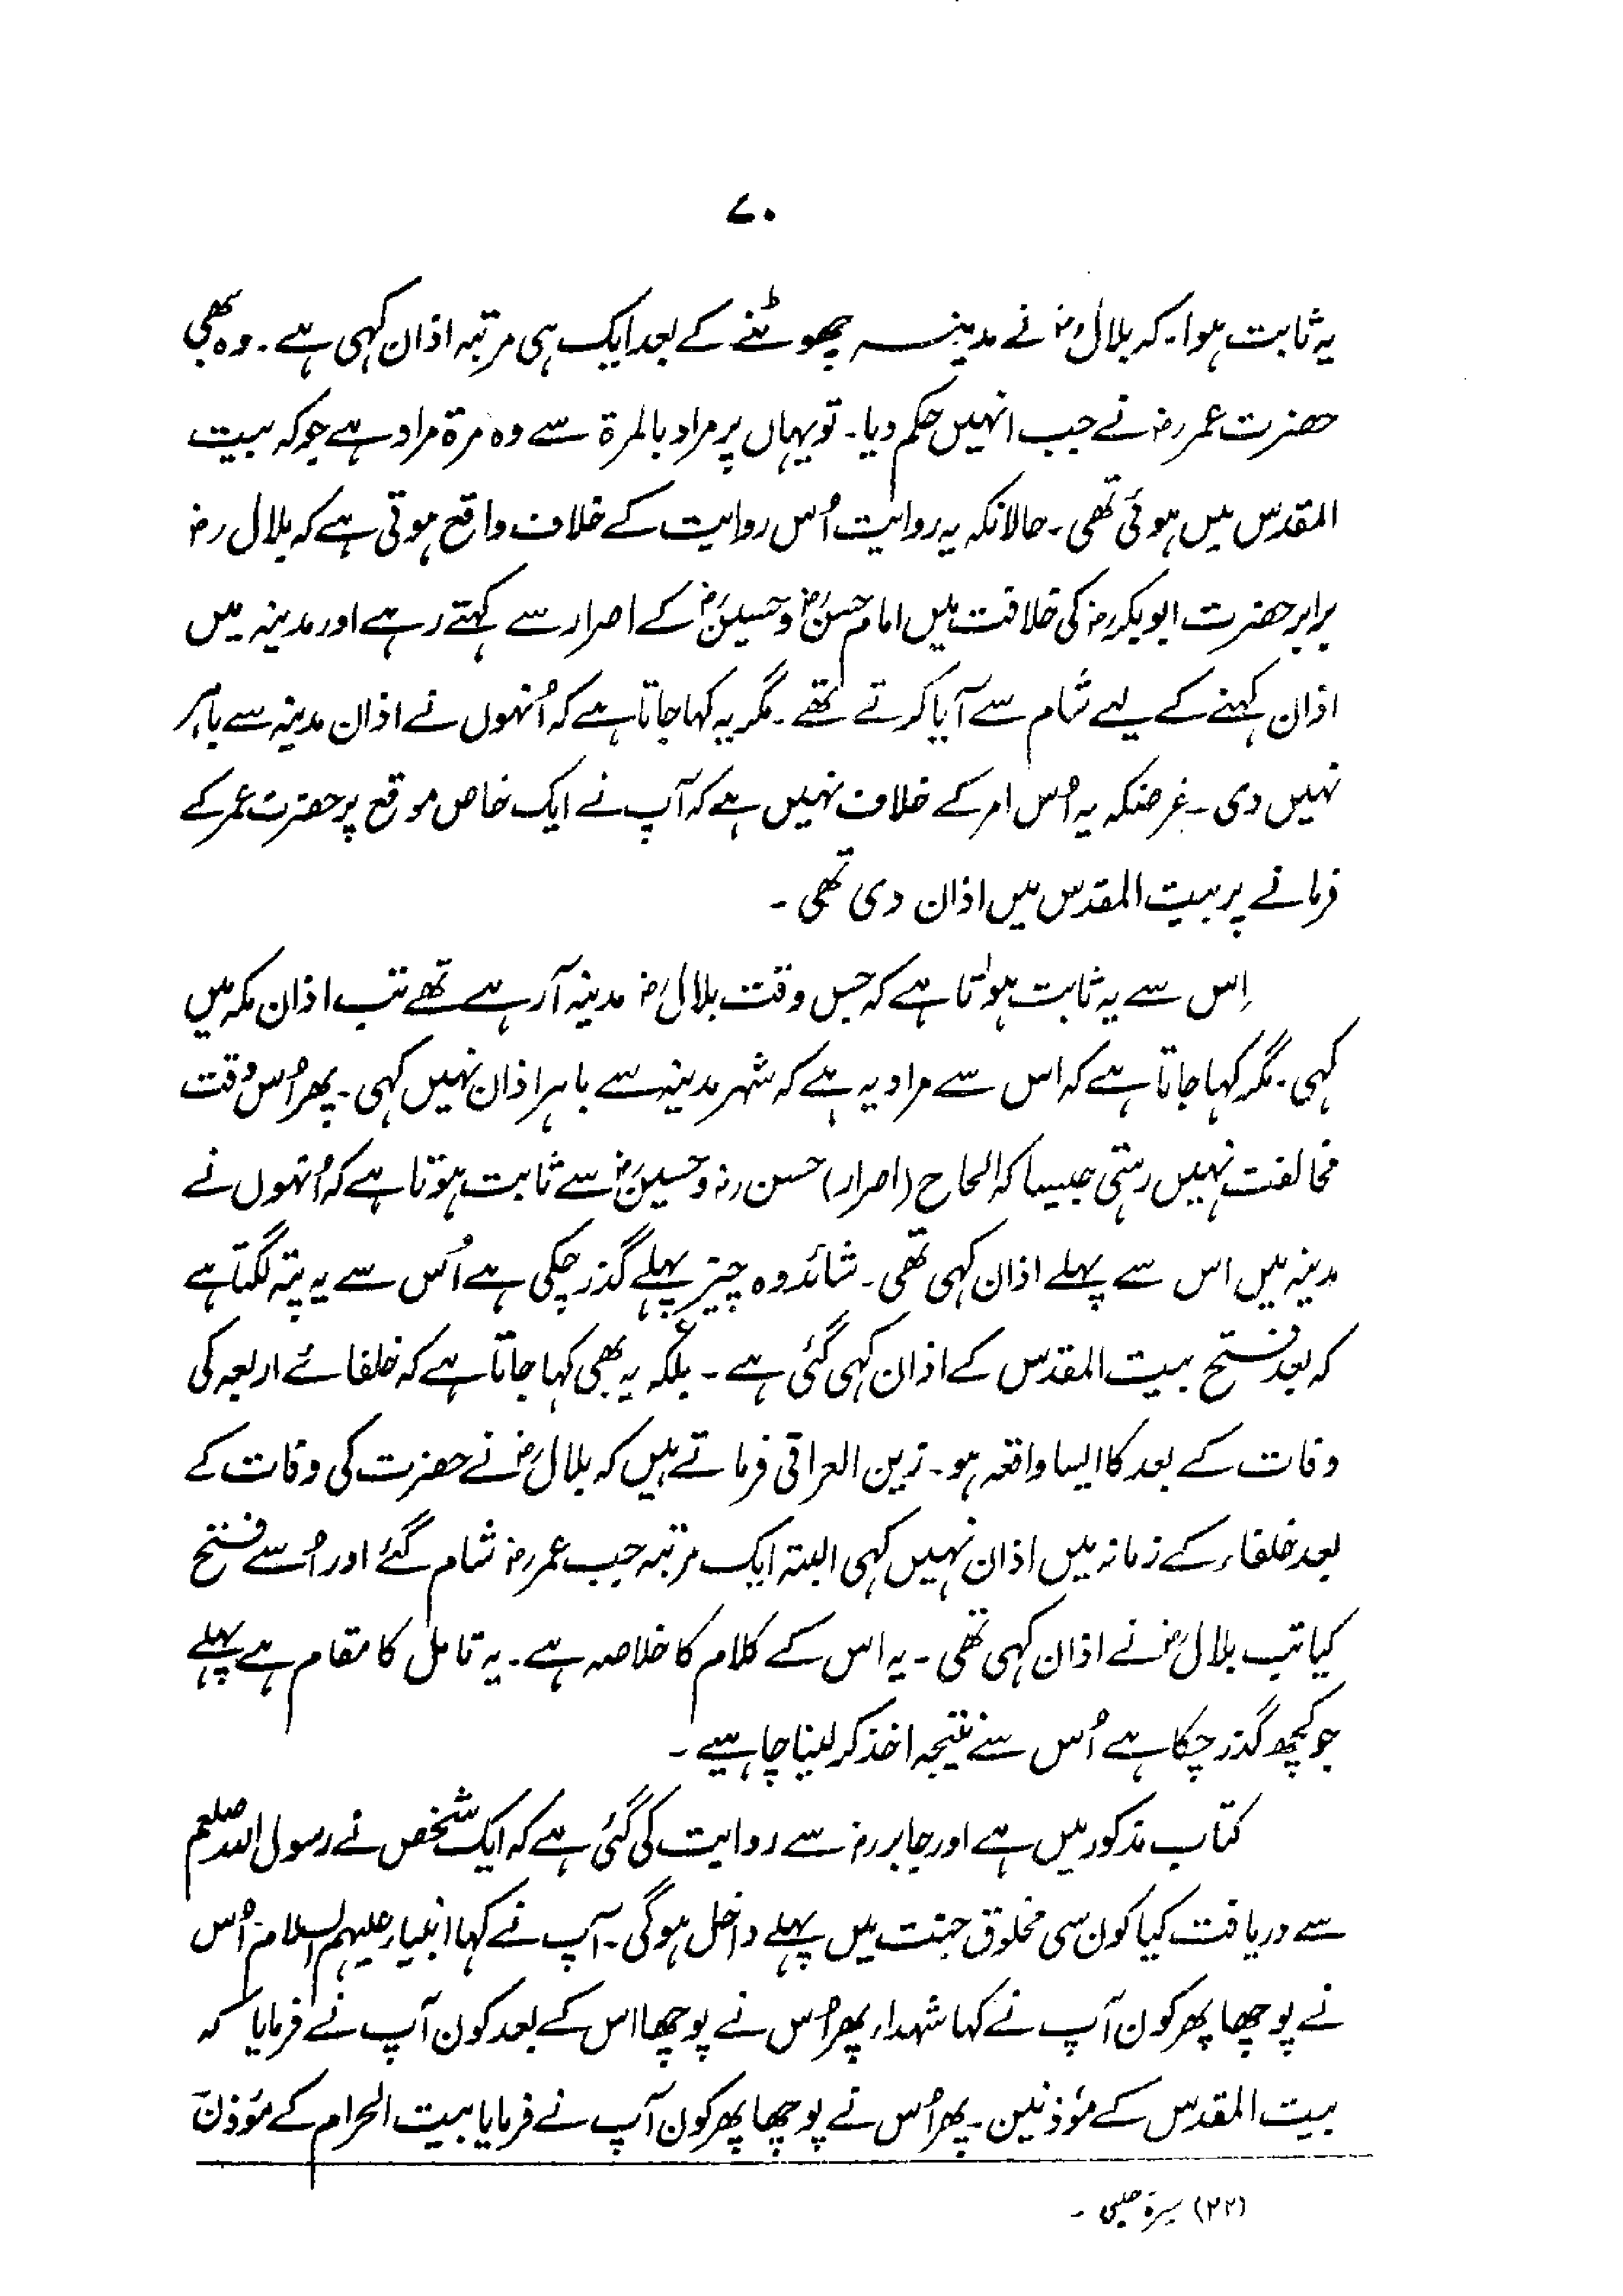 ۷۰
یہ ثابت ہوا۔ کہ بلالؓ نے مدینہ چھوٹنے کے بعد ایک ہی مرتبہ اذان کہی ہے۔ وہ بھی
حضرت عمر رضہ نے جب انہیں حکم دیا۔ تو یہاں پر مراد بالمرۃ سے وہ مرۃ مراد ہے جو کہ بیت
المقدس میں ہوئی تھی۔ حالانکہ یہ روایت اُس روایت کے خلاف واقع ہوتی ہے کہ بلال رضہ
برابر حضرت ابوبکر رضہ کی خلافت میں امام حسنؓ و حسینؓ کے اصرار سے کہتے رہے اور مدینہ میں
اذان کہنے کے لیے شام سے آیا کرتے تھے۔ مگر یہ کہا جاتا ہے کہ اُنہوں نے اذان مدینہ سے باہر
نہیں دی۔ غرضکہ یہ اُس امر کے خلاف نہیں ہے کہ آپ نے ایک خاص موقع پر حضرت عمر کے
فرمانے پر بیت المقدس میں اذان دی تھی۔
اِس سے یہ ثابت ہوتا ہے کہ جس وقت بلالؓ مدینہ آرہے تھے تب اذان مکہ میں
کہی۔ مگر کہا جاتا ہے کہ اس سے مراد یہ ہے کہ شہر مدینہ سے باہر اذان نہیں کہی۔ پھر اُس وقت
مخالفت نہیں رہتی جیسا کہ الحاح (اصرار) حسن رضہ و حسینؓ سے ثابت ہوتا ہے کہ اُنہوں نے
مدینہ میں اس سے پہلے اذان کہی تھی۔ شائد وہ چیز پہلے گذر چکی ہے اُس سے یہ پتہ لگتا ہے
کہ بعد فتح بیت المقدس کے اذان کہی گئی ہے۔ بلکہ یہ بھی کہا جاتا ہے کہ خلفائے اربعہ کی
وفات کے بعد کا ایسا واقعہ ہو۔ زین العراقی فرماتے ہیں کہ بلالؓ نے حضرت کی وفات کے
بعد خلفاء کے زمانہ میں اذان نہیں کہی البتہ ایک مرتبہ جب عمر رضہ شام گئے اور اُسے فتح
کیا تب بلالؓ نے اذان کہی تھی۔ یہ اس کے کلام کا خلاصہ ہے۔ یہ تامل کا مقام ہے پہلے
جو کچھ گذر چکا ہے اُس سے نتیجہ اخذ کر لینا چاہیے۔
کتاب مذکور میں ہے اور جابر رضہ سے روایت کی گئی ہے کہ ایک شخص نے رسول اللہ صلعم
سے دریافت کیا کون سی مخلوق جنت میں پہلے داخل ہوگی۔ آپ نے کہا انبیاء علیہم السلام اُس
نے پوچھا پھر کون آپ نے کہا شہداء پھر اُس نے پوچھا اس کے بعد کون آپ نے فرمایا کہ
بیت المقدس کے مؤذنین۔ پھر اُس نے پوچھا پھر کون آپ نے فرمایا بیت الحرام کے مؤذن
(۲۲) سیرۃ حلبی۔